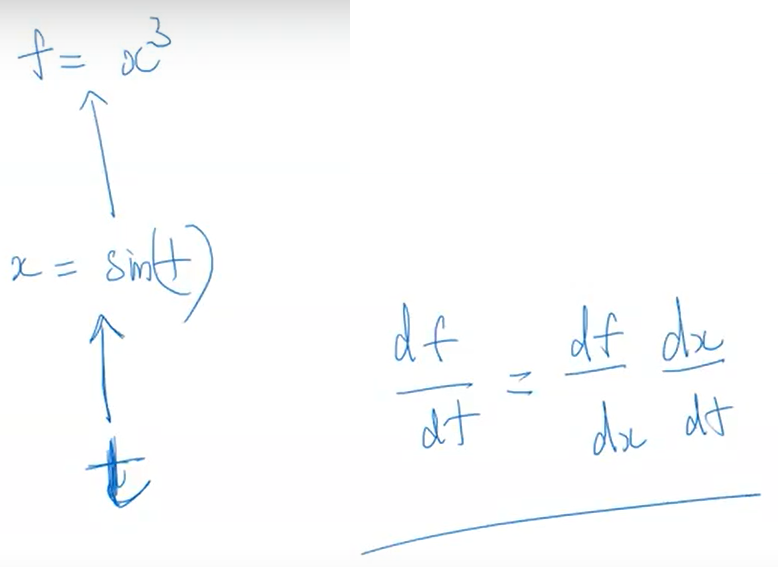 f = x³
x = sin(t)
t
df/dt = df/dx dx/dt